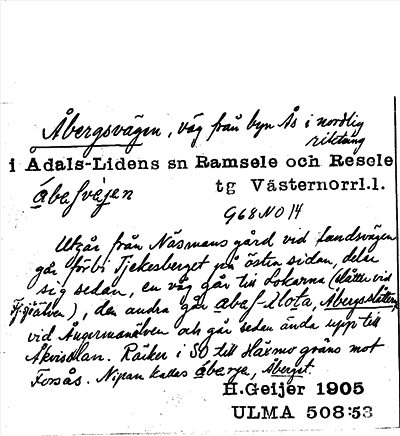 Åbergsvägen, väg från byn Ås i nordlig
riktning
i Ådals-Lidens sn Ramsele och Resele
tg Västernorrl.l.
G68NO14
Utgår från Näsmans gård vid landsvägen
går förbi Tjekesberget på östra sidan, delar
sig sedan, en väg går till Lokarna (slåtter vid
Fjsjöälven), den andra går
Åbergsslåtten,
vid Ångermanälven och går sedan ända upp till
Räcker i SO till Häxmo gräns mot
Forsås. Nipan kallas åberje, Åberget.
H.Geijer 1905
ULMA 508:53